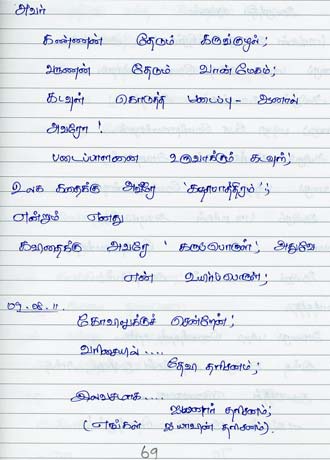 அவர்
கண்ணன் தேடும் கருங்குழல்;
வருணன் தேடும் வான்மேகம்;
கடவுள் கொடுத்த படைப்பு - ஆனால்
அவரோ!
படைப்பாளனை உருவாக்கும் கடவுள்;
உலக கதைக்கு அவரே 'கதாபாத்திரம்';
என்றும் எனது
கவிதைக்கு அவரே 'கருப்பொருள்'; அதுவே
என் உயிர்ப்பொருள்;
கோவிலுக்குச் சென்றேன்;
வரிசையில்....
தேவி தரிசனம்;
இலவசமாக....
தரிசனம்;
(எங்கள் தரிசனம்).
69